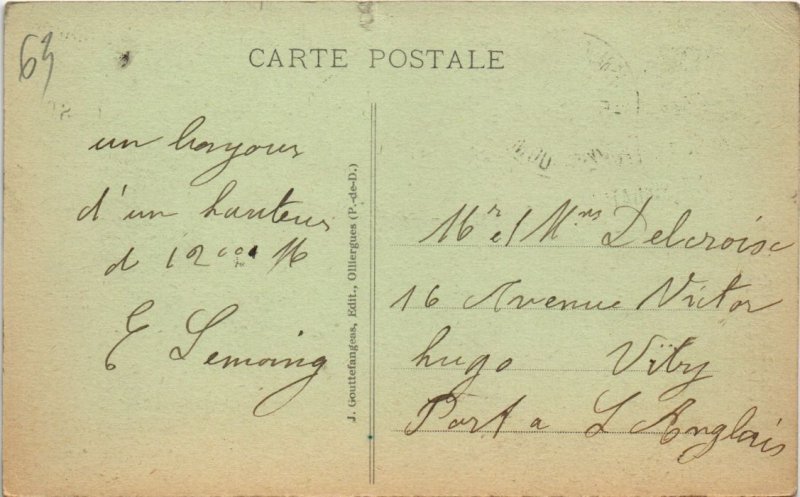 63
CARTE POSTALE
un bonjour
d'un hauteur
d 1200 M
E Lemoing
J. Gouttefangeas, Edit., Olliergues (P.-de-D.)
Mr et Mns Delcroisc
16 Avenue Victor
hugo Vitry
Port a L Anglais